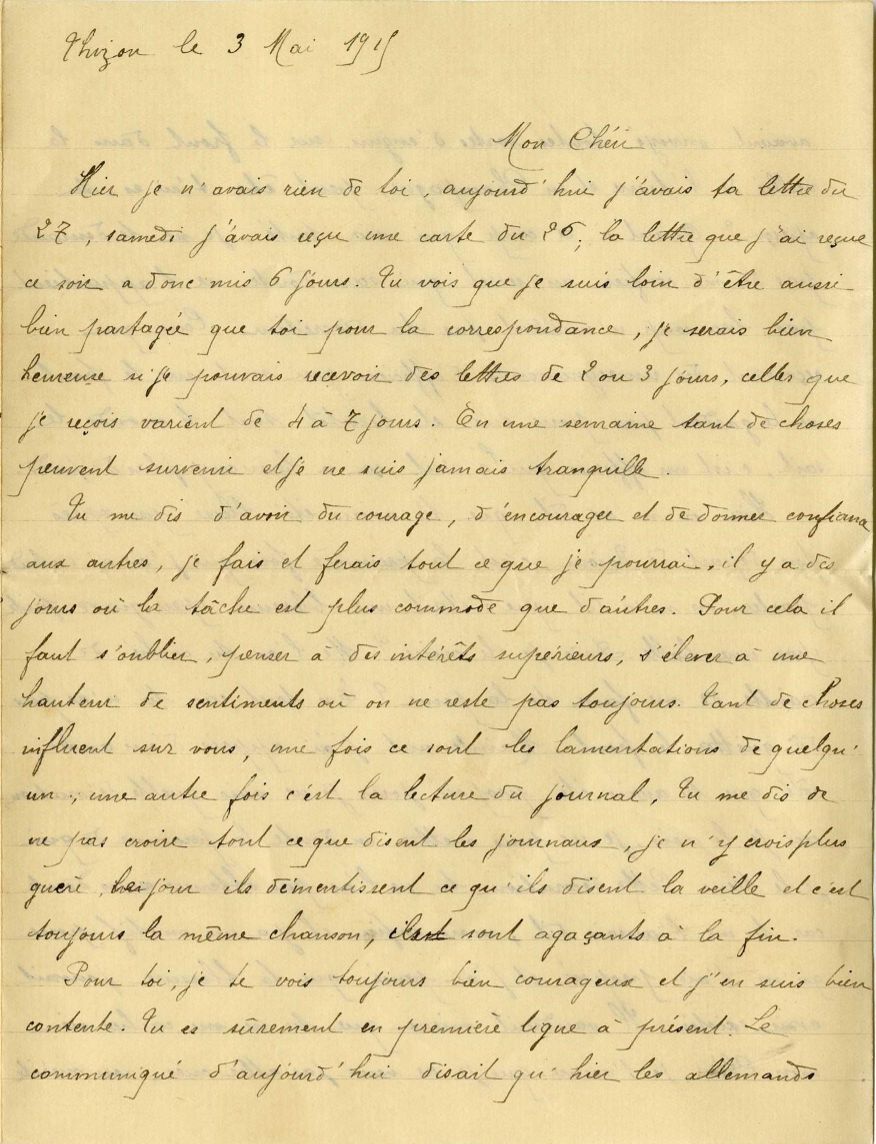 Thizou le 3 Mai 1915
Mon Chéri
Hier je n'avais rien de toi, aujourd'hui j'avais ta lettre du
27, samedi j'avais reçu une carte du 26; la lettre que j'ai reçue
ce soir a donc mis 6 jours. Tu vois que je suis loin d'être aussi
bien partagée que toi pour la correspondance, je serais bien
heureuse si je pouvais recevoir des lettres de 2 ou 3 jours, celles que
je reçois varient de 4 à 7 jours. En une semaine tant de choses
peuvent survenir et je ne suis jamais tranquille.
Tu me dis d'avoir du courage, d'encourager et de donner confiance
aux autres, je fais et ferais tout ce que je pourrai, il y a des
jours où la tâche est plus commode que d'autres. Pour cela il
faut s'oublier, penser à des intérêts supérieurs, s'élever à une
hauteur de sentiments où on ne reste pas toujours. Tant de choses
influent sur vous, une fois ce sont les lamentations de quelqu'
un; une autre fois c'est la lecture du journal. Tu me dis de
ne pas croire tout ce que disent les journaux, je n'y crois plus
guère, jour ils démentissent ce qu'ils disent la veille et c'est
toujours la même chanson, ils sont agaçants à la fin.
Pour toi, je te vois toujours bien courageux et j'en suis bien
contente. Tu es sûrement en première ligne à présent. Le
communiqué d'aujourd'hui disait qu'hier les allemands